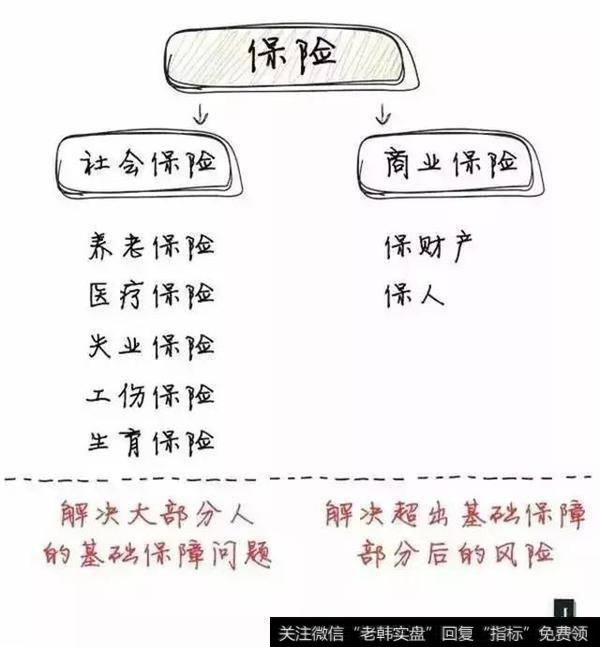 保险
社会保险
商业保险
养老保险
医疗保险
失业保险
工伤保险
生育保险
保财产
保人
解决大部分人
的基础保障问题
解决超出基础保障
部分后的风险
1
关注微信“老韩实盘”回复“指标”免费领